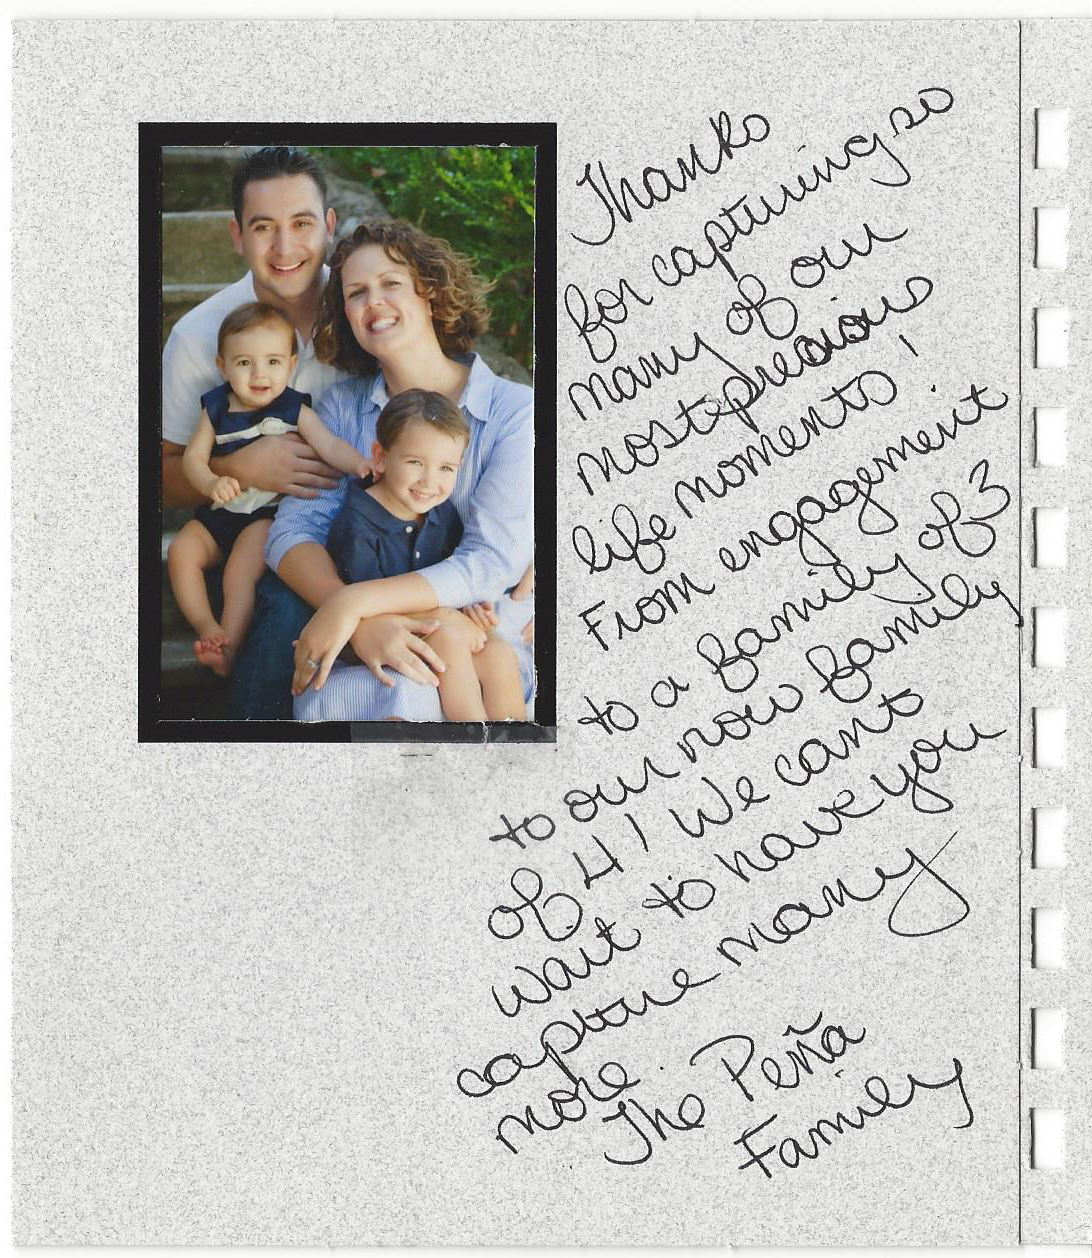 Thanks
for capturing so
many of our
most precious
life moments!
From engagement
to a family of 3
to our now family
of 4! We cant
wait to have you
capture many
more.
The Peña
Family